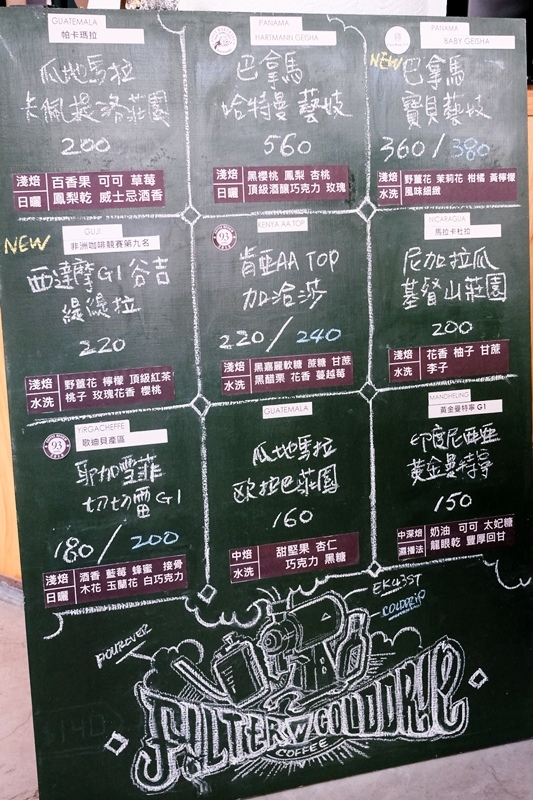 GUATEMALA
帕卡瑪拉
瓜地馬拉
卡佩提洛莊園
200
淺焙 百香果 可可 草莓
日曬 鳳梨乾 威士忌酒香
PANAMA
HARTMANN GEISHA
巴拿馬
哈特曼 藝妓
560
淺焙 黑櫻桃 鳳梨 杏桃
日曬 頂級酒釀巧克力 玫瑰
PANAMA
BABY GEISHA
NEW 巴拿馬
寶貝藝妓
360 / 380
淺焙 野薑花 茉莉花 柑橘 黃檸檬
水洗 風味細緻
NEW
GUJI
非洲咖啡競賽第九名
西達摩G1 谷吉
緹緹拉
220
淺焙 野薑花 檸檬 頂級紅茶
水洗 桃子 玫瑰花香 櫻桃
93
KENYA AA TOP
肯亞AA TOP
加洽莎
220 / 240
淺焙 黑嘉麗軟糖 蔗糖 甘蔗
水洗 黑醋栗 花香 蔓越莓
NICARAGUA
馬拉卡杜拉
尼加拉瓜
基督山莊園
200
淺焙 花香 柚子 甘蔗
水洗 李子
93
YIRGACHEFFE
歌迪貝產區
耶加雪菲
切切雷G1
180 / 200
淺焙 酒香 藍莓 蜂蜜 接骨
日曬 木花 玉蘭花 白巧克力
GUATEMALA
瓜地馬拉
歐拉巴莊園
160
中焙 甜堅果 杏仁
水洗 巧克力 黑糖
MANDHELING
黃金曼特寧 G1
印度尼西亞
黃金曼特寧
150
中深焙 奶油 可可 太妃糖
濕播法 龍眼乾 豐厚回甘
POUROVER
EK43ST
COLDDRIP
FILTER N COLDDRIP
COFFEE